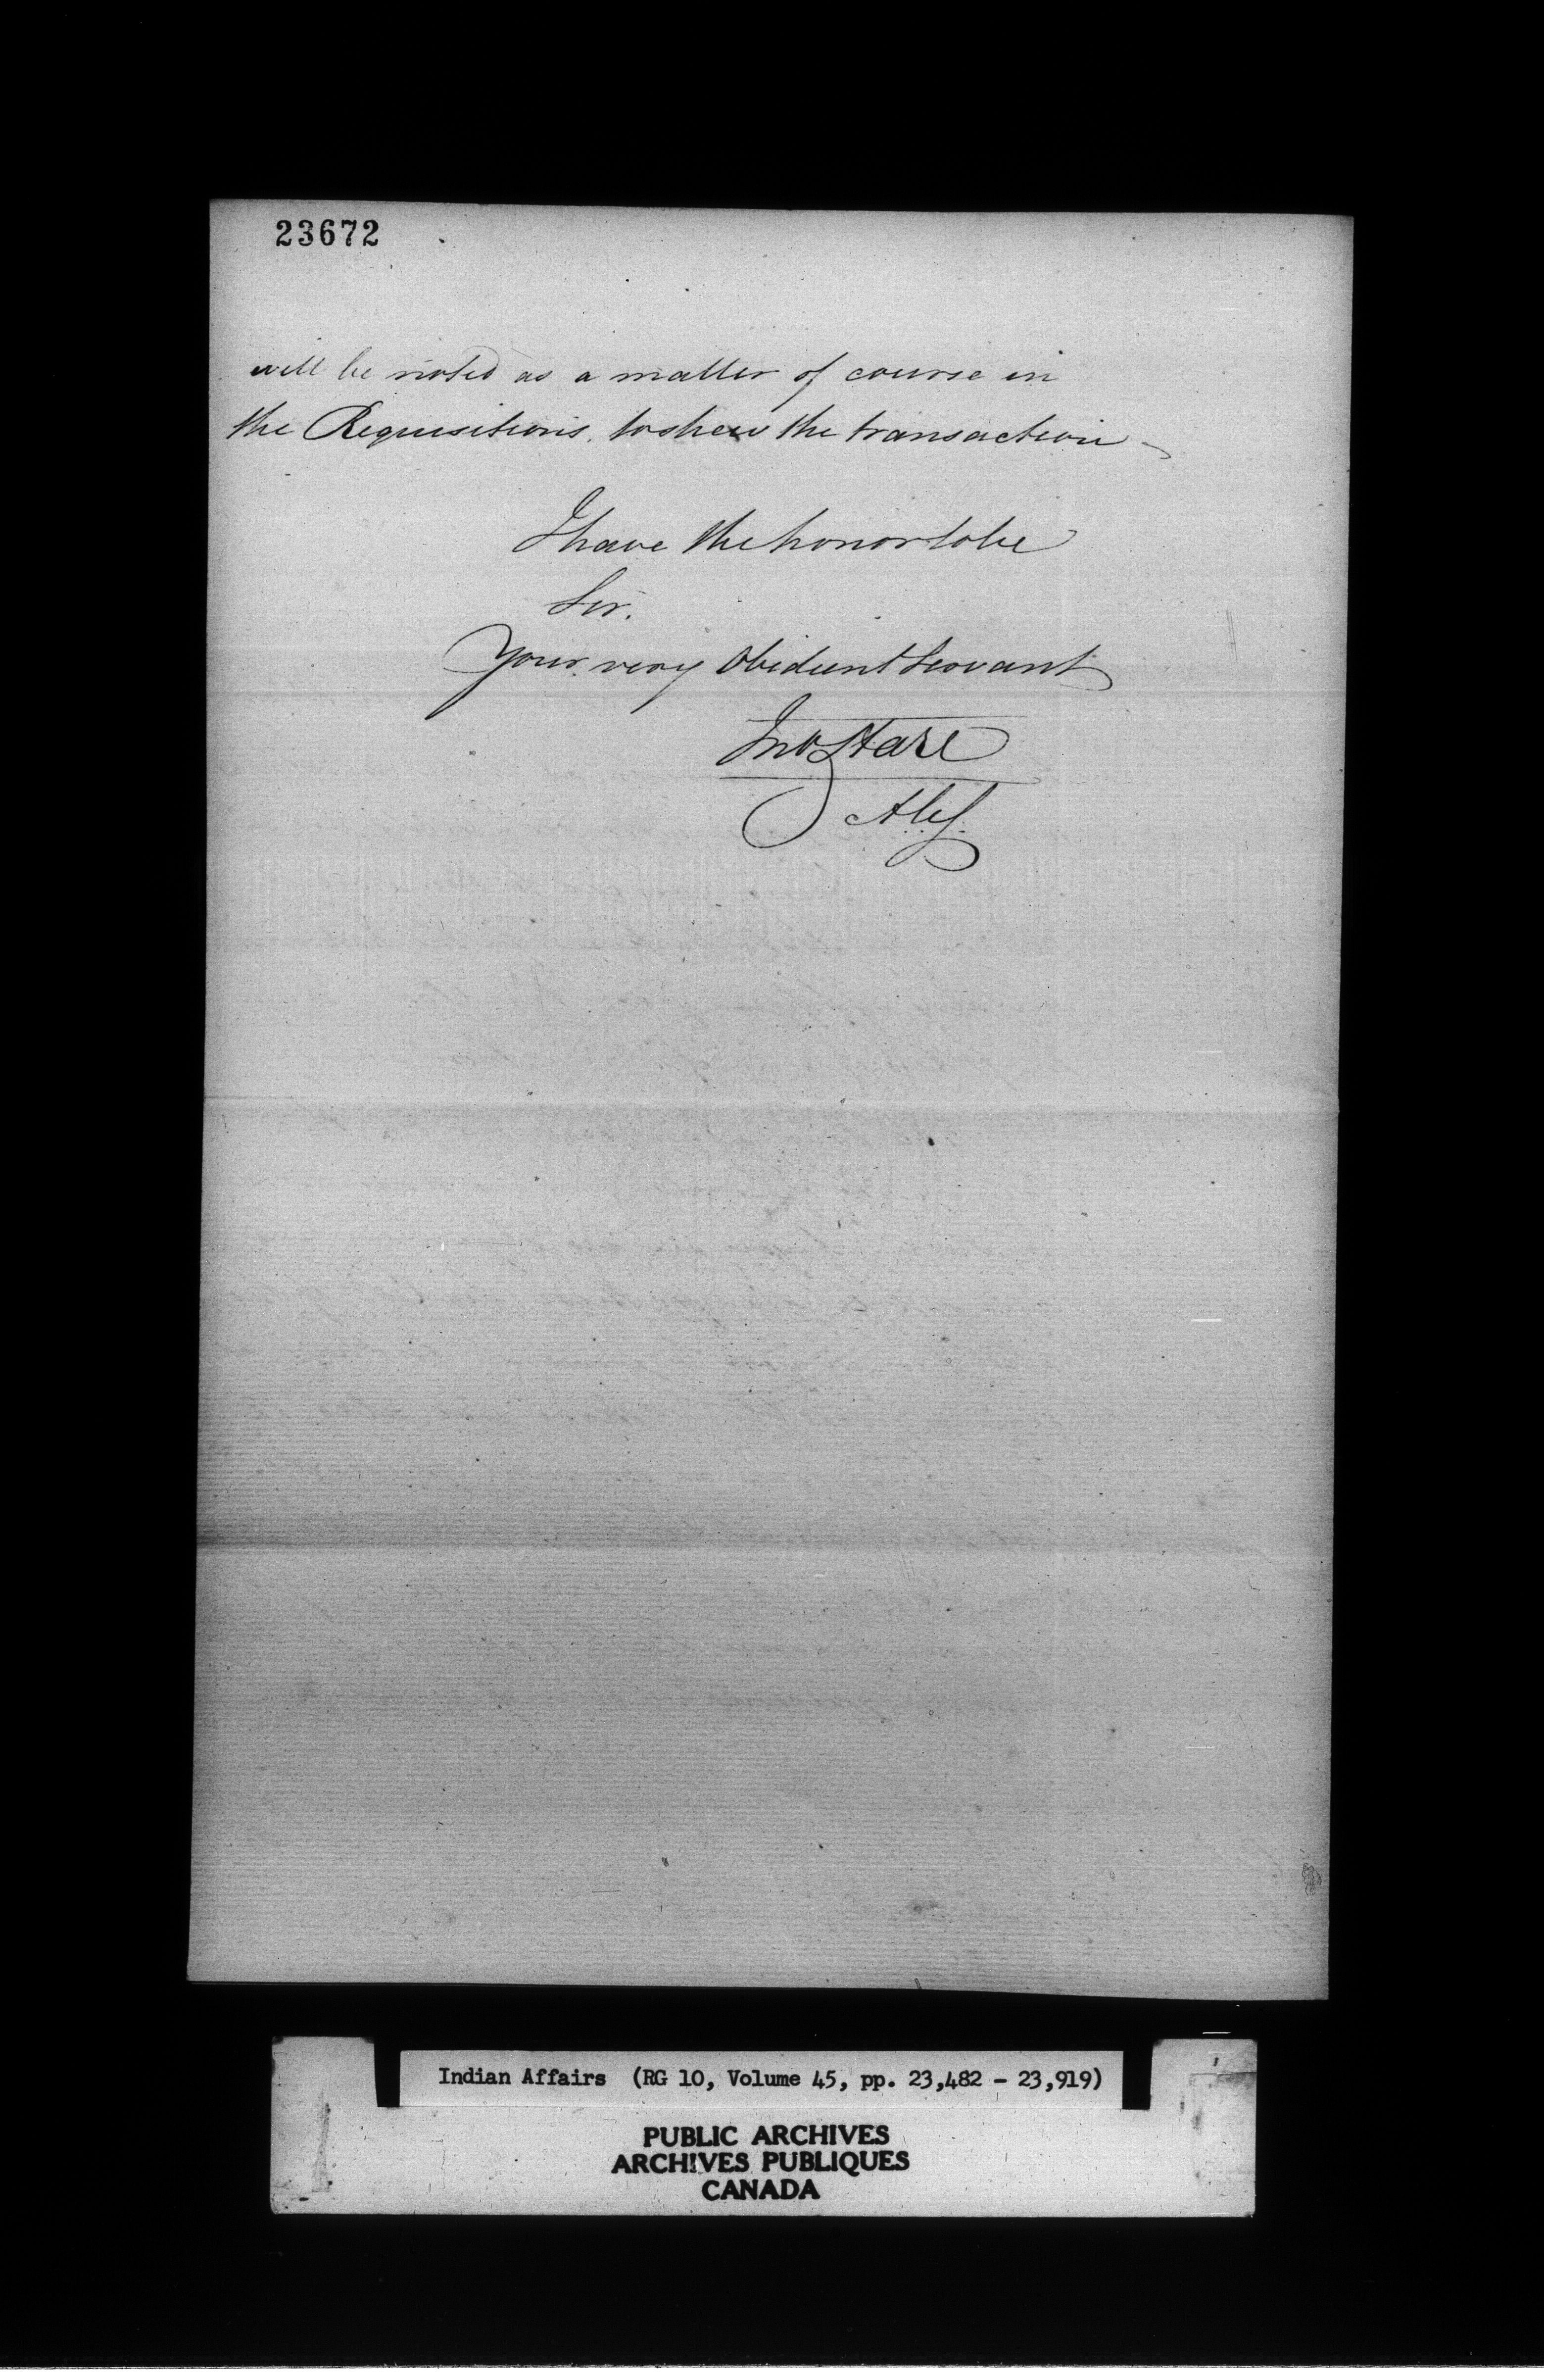 23672
will be noted as a matter of course in
the Requisitions. to shew the transaction
I have the honor to be
Sir.
Your very Obedient Servant
Jno Hare
Indian Affairs (RG 10, Volume 45, pp. 23,482 – 23,919)
PUBLIC ARCHIVES
ARCHIVES PUBLIQUES
CANADA